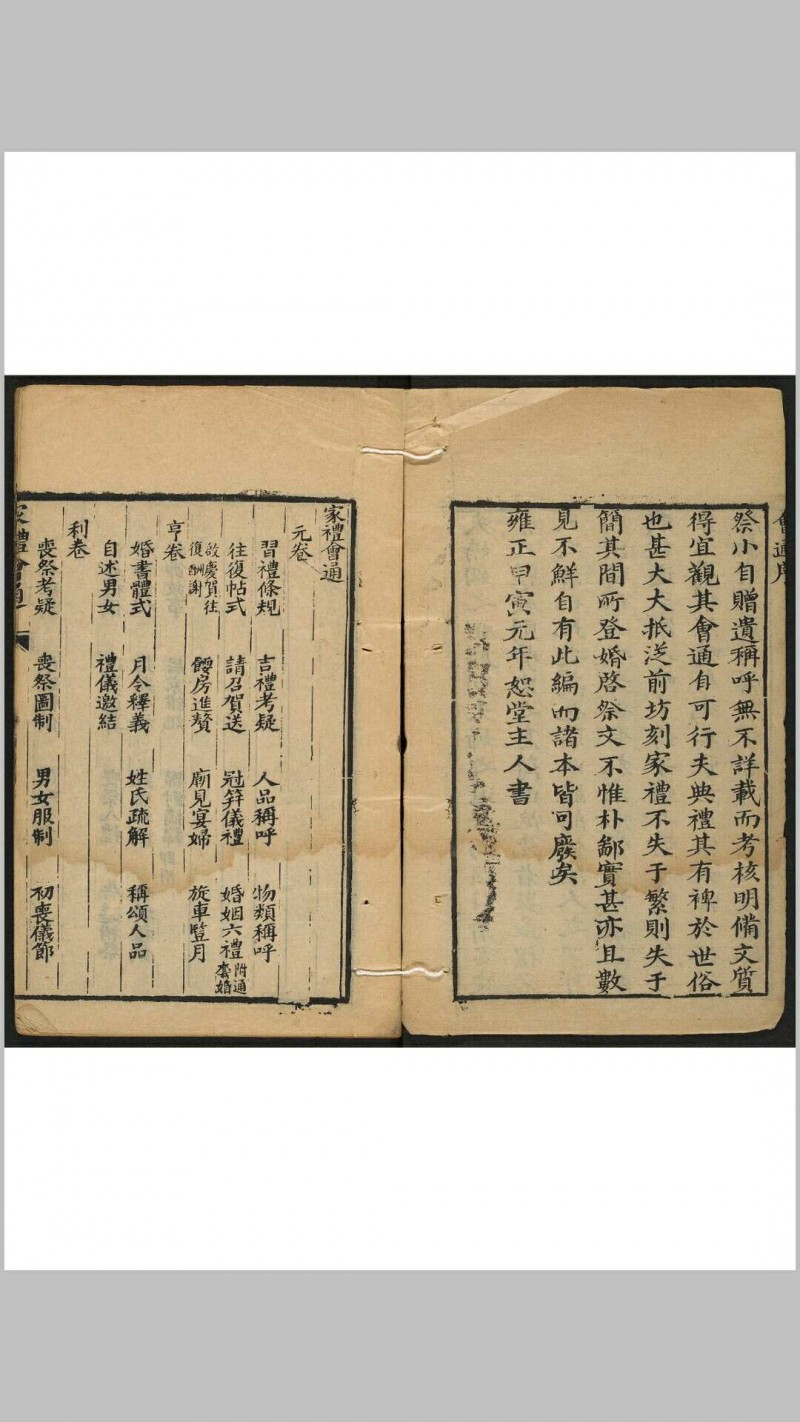 會通序
祭小自贈遺稱呼無不詳載而考核明備文質
得宜觀其會通自可行夫典禮其有裨於世俗
也甚大大抵從前坊刻家禮不失于繁則失于
簡其間所登婚啓祭文不惟朴鄙實甚亦且數
見不鮮自有此編而諸本皆可廢矣
雍正甲寅元年恕堂主人書
家禮會通
元卷
習禮條規 吉禮考疑 人品稱呼 物類稱呼
往復帖式 請召賀送 冠笄儀禮 婚姻六禮附通套婚
啟慶賀往復酬謝 餪房進贅 廟見宴婦 旋車暨月
亨卷
婚書體式 月令釋義 姓氏疏解 稱頌人品
自述男女 禮儀邀結
利卷
喪祭考疑 喪祭圖制 男女服制 初喪儀節
家禮會通